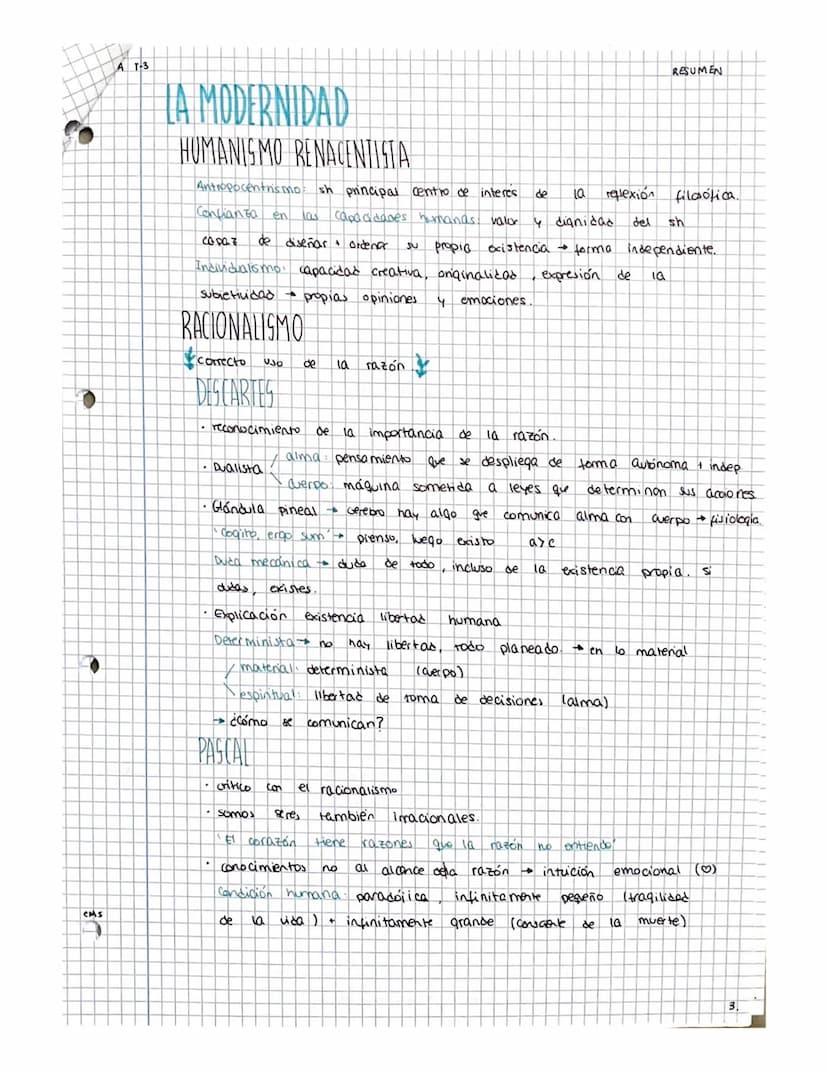 A T-3
RESUMEN
LA MODERNIDAD
HUMANISMO RENACENTISTA
Antropocentrismo: sh principal centro de interés de la reflexión filosófica.
Confianza en las capacidades humanas: valor y dignidad del sh
capaz de diseñar + ordenar su propia existencia → forma independiente.
Individualismo: capacidad creativa, originalidad, expresión de la
subjetividad → propias opiniones y emociones.
RACIONALISMO
correcto uso de la razón
DESCARTES
· reconocimiento de la importancia de la razón.
alma: pensamiento que se despliega de forma autónoma + indep
· Dualista
cuerpo: máquina sometida a leyes que determinan sus acciones
· Glándula pineal → cerebro hay algo que comunica alma con cuerpo → fisiología
'Cogito, ergo sum' → pienso, luego existo
Duda mecánica → duda de todo, incluso de la existencia propia. si
dudas, existes.
· Explicación existencia libertad humana
Determinista → no hay libertad, todo planeado. → en lo material
material: determinista (cuerpo)
espiritual: libertad de toma de decisiones (alma)
→ ¿Cómo se comunican?
PASCAL
· crítico con el racionalismo
· somos seres también irracionales.
'El corazón tiene razones que la razón no entiende'
· conocimientos no al alcance de la razón → intuición emocional (♡)
Condición humana: paradójica, infinitamente pequeño (fragilidad
de la vida) + infinitamente grande (consciente de la muerte)
CMS
3.